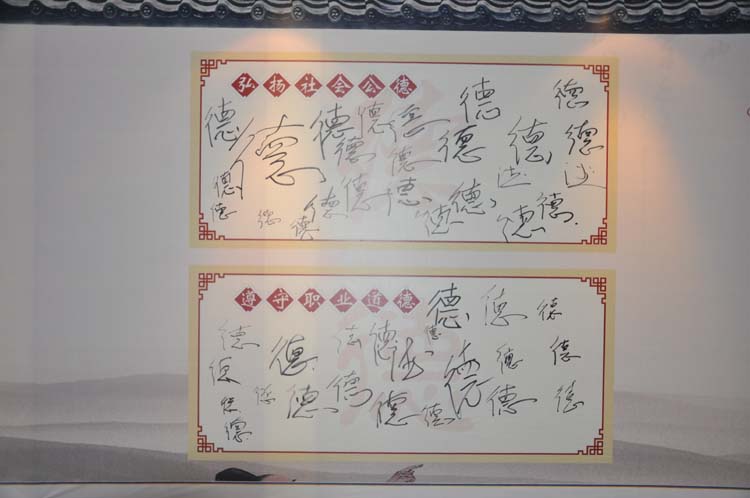 弘扬社会公德
德 德 德 德 德 德 德 德
德 德 德 德 德
德 德 德 德 德 德
德 德 德 德 德
遵守职业道德
德 德 德 德 德 德
德 德 德 德
德 德 德 德 德